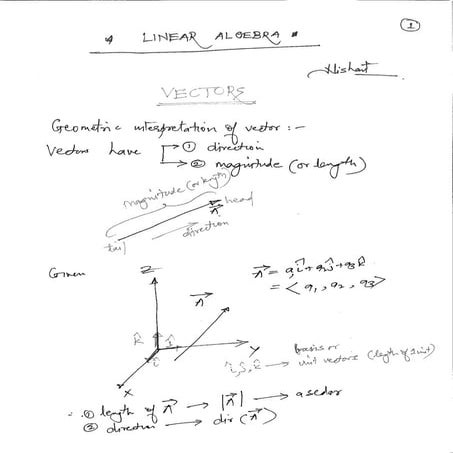 1
LINEAR ALGEBRA
Nishant
VECTORS
Geometric interpretation of vector :-
Vectors have → ① direction
→ ② magnitude (or length)
magnitude (or length)
head
A⃗
direction
tail
Given
Z
A⃗
A⃗ = a₁î + a₂ĵ + a₃k̂
= < a₁, a₂, a₃ >
k̂ ĵ
î
Y
X
basis or
î, ĵ, k̂ → unit vectors (length of 1 unit)
∴ ① length of A⃗ → |A⃗| → a scalar
② direction → dir (A⃗)